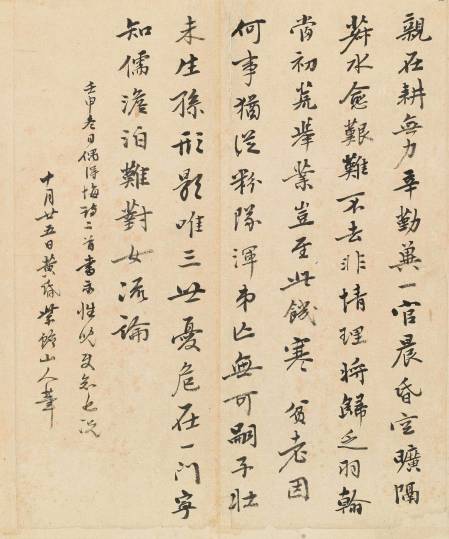 親在耕無力辛勤兼一官晨昏空曠隔
菽水愈艱難不去非情理將歸乏羽翰
當初荒舉業豈至此饑寒 貧老因
何事猶從粉隊渾弟亡無可嗣子壯
未生孫形影唯三世憂危在一門寧
知儒澹泊難對女流論
壬申冬日偶得悔詩二首書示性兒
十月廿五日黃昏紫山人華